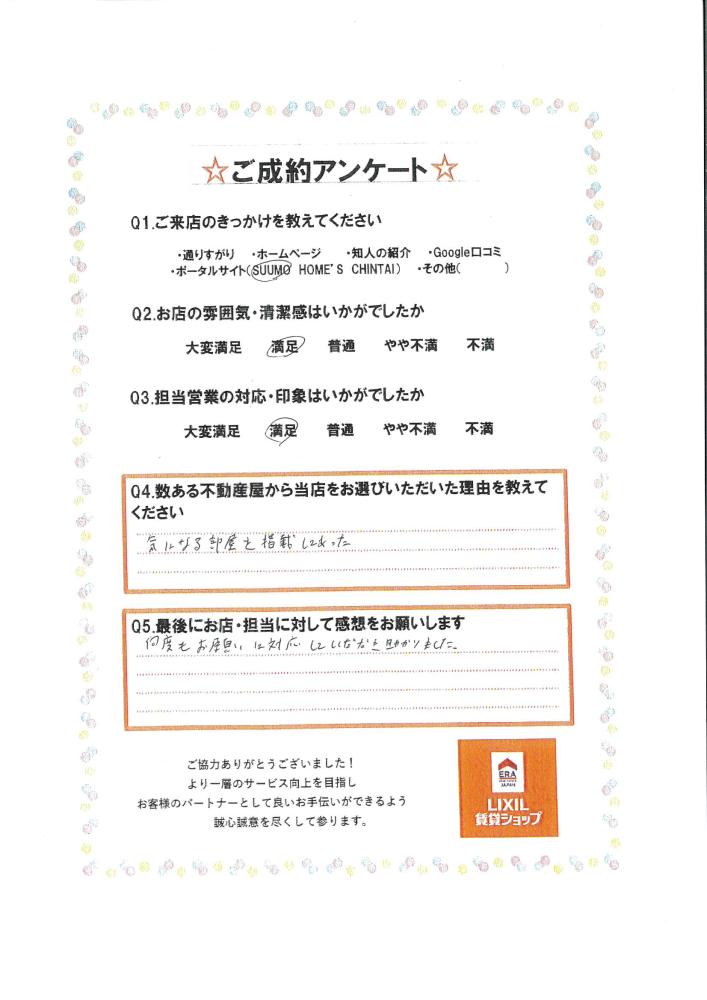 ☆ご成約アンケート☆
Q1.ご来店のきっかけを教えてください
・通りすがり ・ホームページ ・知人の紹介 ・Google口コミ
・ポータルサイト(SUUMO HOME'S CHINTAI) ・その他( )
Q2.お店の雰囲気・清潔感はいかがでしたか
大変満足 満足 普通 やや不満 不満
Q3.担当営業の対応・印象はいかがでしたか
大変満足 満足 普通 やや不満 不満
Q4.数ある不動産屋から当店をお選びいただいた理由を教えて
ください
気になる部屋を掲載してあった
Q5.最後にお店・担当に対して感想をお願いします
何度もお願いに対応していただき助かりました。
ご協力ありがとうございました！
より一層のサービス向上を目指し
お客様のパートナーとして良いお手伝いができるよう
誠心誠意を尽くして参ります。
ERA
JAPAN
LIXIL
賃貸ショップ